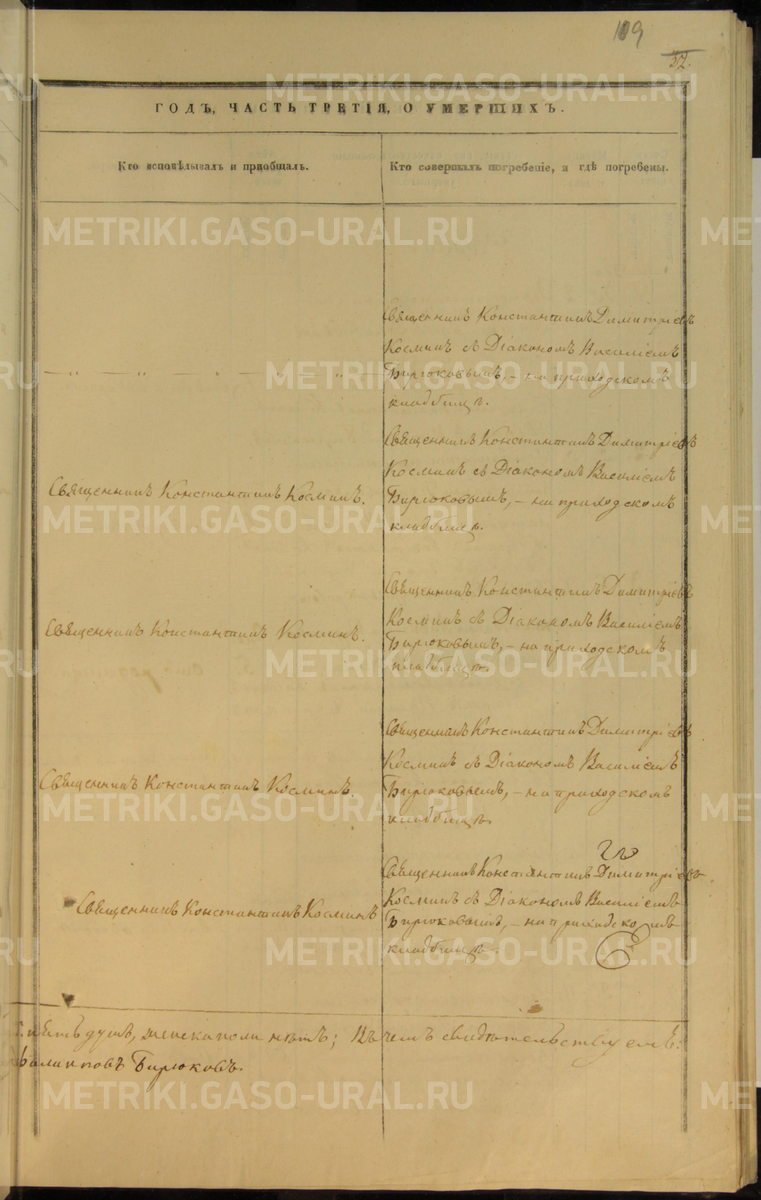 109
52.
ГОДЪ, ЧАСТЬ ТРЕТІЯ, О УМЕРШИХЪ.
Кто исповѣдывалъ и пріобщалъ.
Кто совершалъ погребеніе, и гдѣ погребены.
Священникъ Константинъ Димитріевъ
Косминъ съ Діакономъ Василіемъ
Бирюковымъ, – на приходскомъ
кладбищѣ.
Священникъ Константинъ Косминъ.
Священникъ Константинъ Димитріевъ
Косминъ съ Діакономъ Василіемъ
Бирюковымъ, – на приходскомъ
кладбищѣ.
Священникъ Константинъ Косминъ.
Священникъ Константинъ Димитріевъ
Косминъ съ Діакономъ Василіемъ
Бирюковымъ, – на приходскомъ
кладбищѣ.
Священникъ Константинъ Косминъ.
Священникъ Константинъ Димитріевъ
Косминъ съ Діакономъ Василіемъ
Бирюковымъ, – на приходскомъ
кладбищѣ.
Священникъ Константинъ Косминъ
Священникъ Константинъ Димитріевъ
Косминъ съ Діакономъ Василіемъ
Бирюковымъ, – на приходскомъ
кладбищѣ.
пять душъ, женска пола нѣтъ; Въ чемъ свидѣтельствуемъ:
Филипповъ Бирюковъ.
METRIKI.GASO-URAL.RU